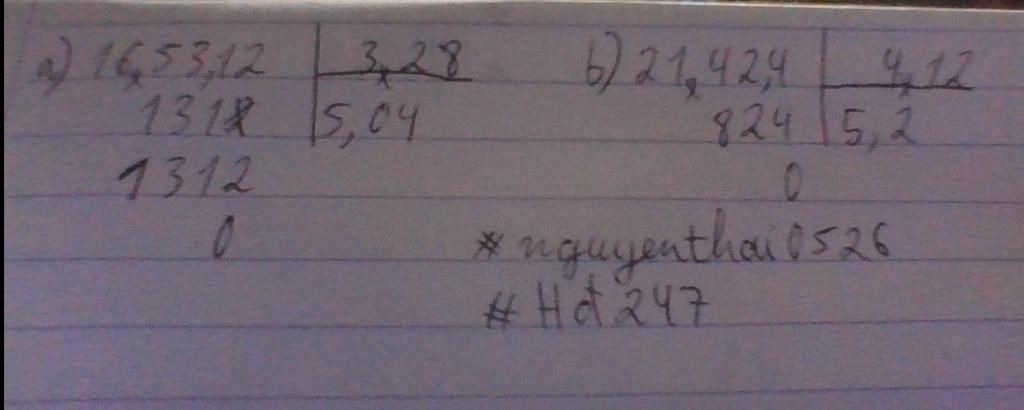 a) 16,53,12 3,28
131 5,04
1312
0
b) 21,42,4 4,12
824 5,2
0
* nguyenthai0526
# Hd 247